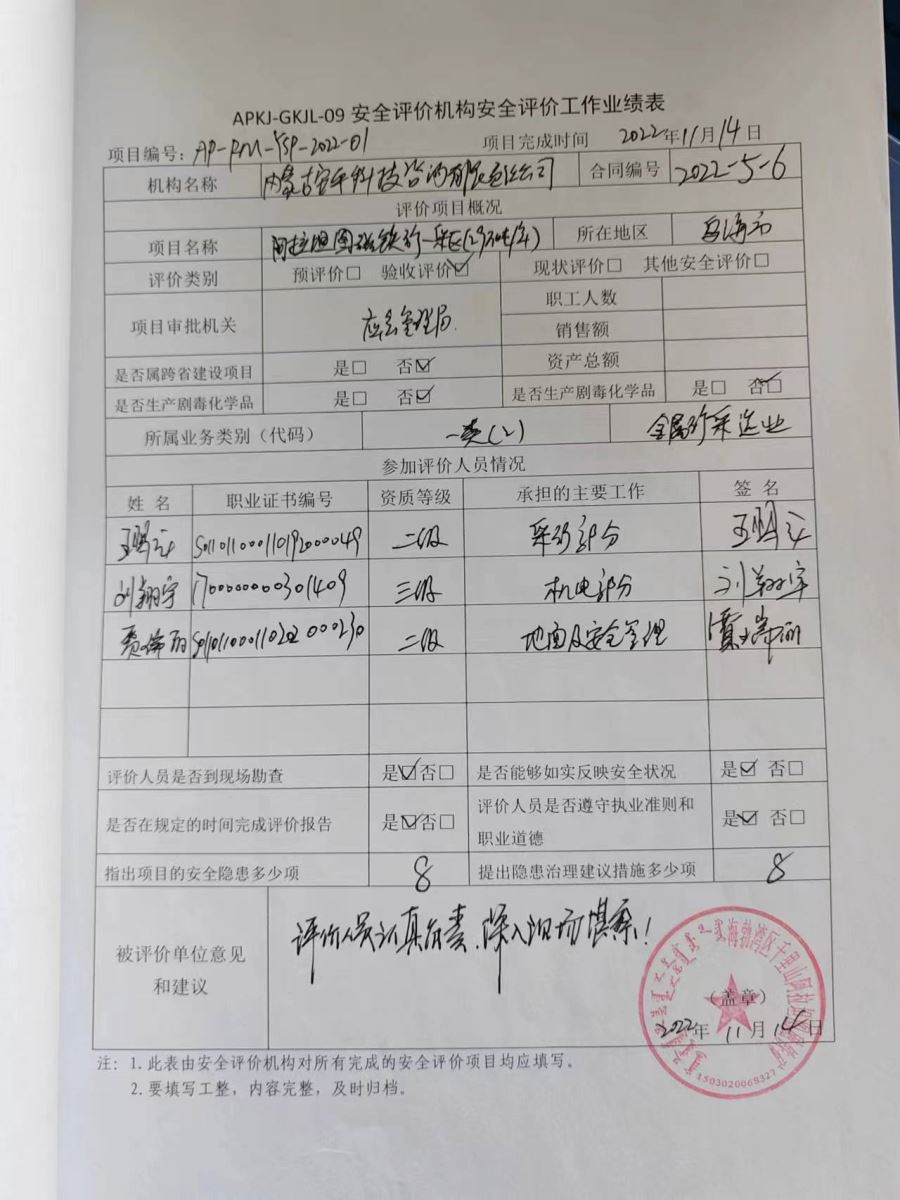 APKJ-GKJL-09 安全评价机构安全评价工作业绩表
项目编号：AP-PM-YSP-2022-01 项目完成时间 2022年11月14日
机构名称 内蒙古安平科技咨询有限责任公司 合同编号 2022-5-6
评价项目概况
项目名称 阿拉坦图磁铁矿一采区(29万吨/年) 所在地区 乌海市
评价类别 预评价□ 验收评价☑ 现状评价□ 其他安全评价□
项目审批机关 应急管理局 职工人数
销售额
是否属跨省建设项目 是□ 否☑ 资产总额
是否生产剧毒化学品 是□ 否☑ 是否生产剧毒化学品 是□ 否☑
所属业务类别（代码） 一类(2) 金属矿采选业
参加评价人员情况
姓 名 职业证书编号 资质等级 承担的主要工作 签 名
S011011000110192000049 二级 采矿部分
刘翔宇 1700000000301409 三级 机电部分 刘翔宇
贾瑞丽 二级 地面及安全管理 贾瑞丽
评价人员是否到现场勘查 是☑否□ 是否能够如实反映安全状况 是☑ 否□
是否在规定的时间完成评价报告 是☑否□ 评价人员是否遵守执业准则和
职业道德 是☑ 否□
指出项目的安全隐患多少项 8 提出隐患治理建议措施多少项 8
被评价单位意见
和建议
评价人员认真负责、深入现场堪察！
（盖章）
2022年11月14日
1503020068327
注：1.此表由安全评价机构对所有完成的安全评价项目均应填写。
2.要填写工整，内容完整，及时归档。